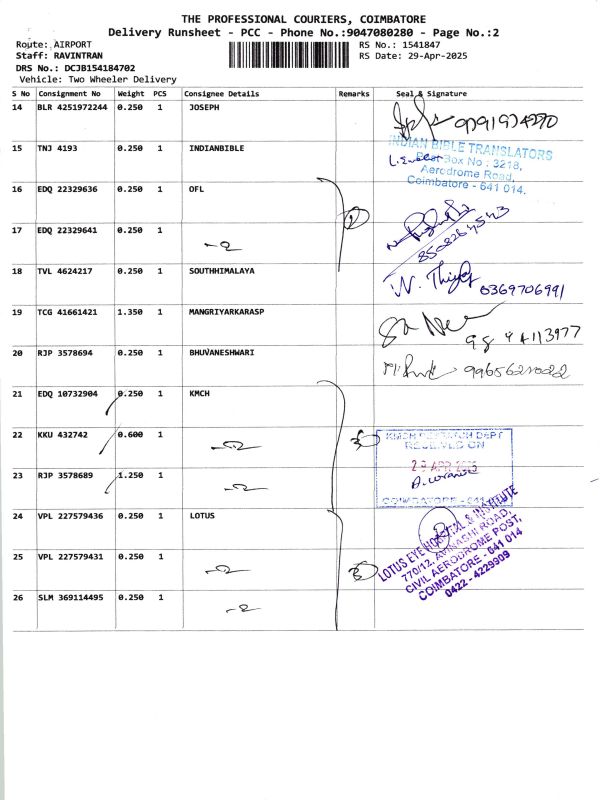 THE PROFESSIONAL COURIERS, COIMBATORE
Delivery Runsheet - PCC - Phone No.:9047080280 - Page No.:2
Route: AIRPORT
Staff: RAVINTRAN
DRS No.: DCJB154184702
Vehicle: Two Wheeler Delivery
RS No.: 1541847
RS Date: 29-Apr-2025
S No Consignment No Weight PCS Consignee Details Remarks Seal & Signature
14 BLR 4251972244 0.250 1 JOSEPH
15 TNJ 4193 0.250 1 INDIANBIBLE
INDIAN BIBLE TRANSLATORS
Post Box No : 3218,
Aerodrome Road,
Coimbatore - 641 014.
16 EDQ 22329636 0.250 1 OFL
17 EDQ 22329641 0.250 1
8508264543
18 TVL 4624217 0.250 1 SOUTHHIMALAYA
6369706991
19 TCG 41661421 1.350 1 MANGRIYARKARASP
20 RJP 3578694 0.250 1 BHUVANESHWARI
21 EDQ 10732904 0.250 1 KMCH
22 KKU 432742 0.600 1
KMCH RESEARCH DEPT
RECEIVED ON
29 APR 2025
COIMBATORE - 641
23 RJP 3578689 1.250 1
24 VPL 227579436 0.250 1 LOTUS
25 VPL 227579431 0.250 1
LOTUS EYE HOSPITAL & INSTITUTE
770/12, AVINASHI ROAD,
CIVIL AERODROME POST,
COIMBATORE - 641 014
0422 - 4229909
26 SLM 369114495 0.250 1